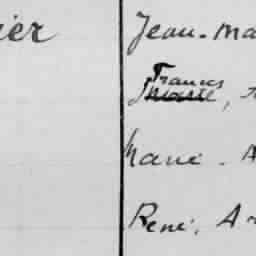 ier Jean-Ma
Francis
Marie,
Marie. A
René, A